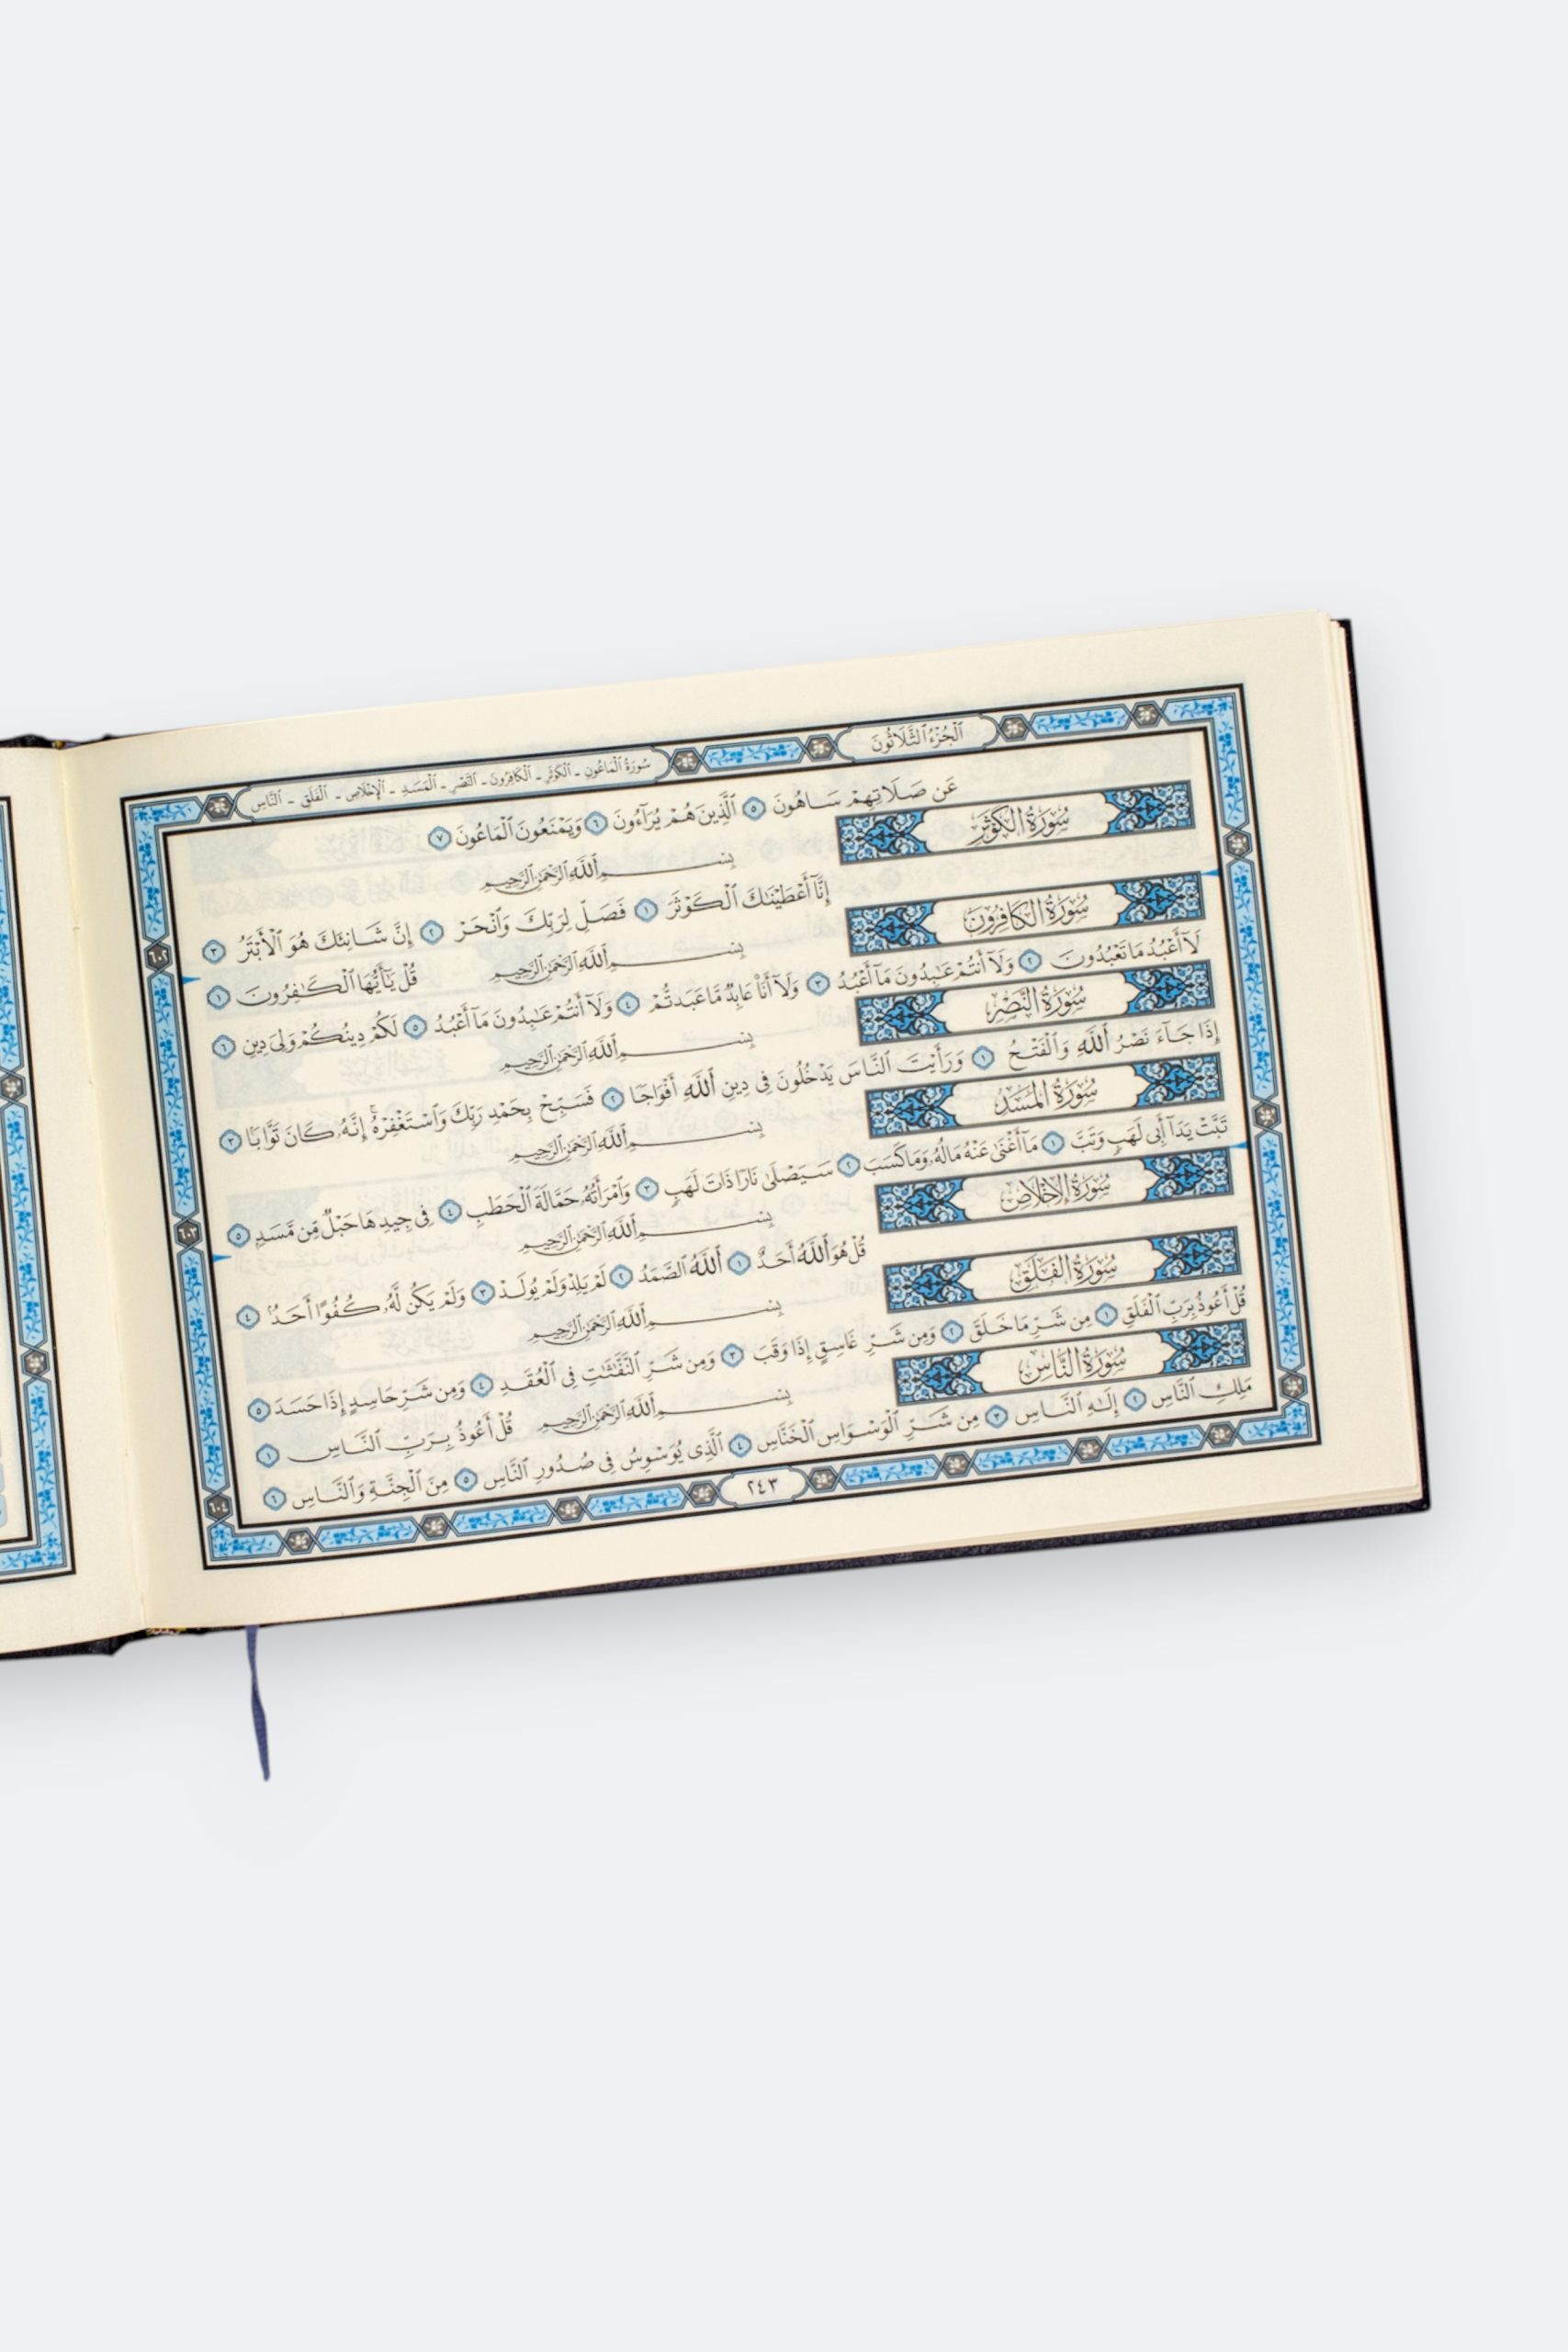 الجُزْءُ الثَّلَاثُونَ
سُورَةُ الْمَاعُونِ - الكَوْثَرِ - الْكَافِرُونَ - النَّصْرِ - الْمَسَدِ - الْإِخْلَاصِ - الْفَلَقِ - النَّاسِ
عَن صَلَاتِهِمْ سَاهُونَ ٥ ٱلَّذِينَ هُمْ يُرَآءُونَ ٦ وَيَمْنَعُونَ ٱلْمَاعُونَ ٧
سُورَةُ الكَوْثَرِ
بِسْمِ ٱللَّهِ ٱلرَّحْمَٰنِ ٱلرَّحِيمِ
إِنَّآ أَعْطَيْنَٰكَ ٱلْكَوْثَرَ ١ فَصَلِّ لِرَبِّكَ وَٱنْحَرْ ٢ إِنَّ شَانِئَكَ هُوَ ٱلْأَبْتَرُ ٣
سُورَةُ الكَافِرُونَ
بِسْمِ ٱللَّهِ ٱلرَّحْمَٰنِ ٱلرَّحِيمِ قُلْ يَٰٓأَيُّهَا ٱلْكَٰفِرُونَ ١
لَآ أَعْبُدُ مَا تَعْبُدُونَ ٢ وَلَآ أَنتُمْ عَٰبِدُونَ مَآ أَعْبُدُ ٣ وَلَآ أَنَا۠ عَابِدٌ مَّا عَبَدتُّمْ ٤ وَلَآ أَنتُمْ عَٰبِدُونَ مَآ أَعْبُدُ ٥ لَكُمْ دِينُكُمْ وَلِىَ دِينِ ٦
سُورَةُ النَّصْرِ
بِسْمِ ٱللَّهِ ٱلرَّحْمَٰنِ ٱلرَّحِيمِ
إِذَا جَآءَ نَصْرُ ٱللَّهِ وَٱلْفَتْحُ ١ وَرَأَيْتَ ٱلنَّاسَ يَدْخُلُونَ فِى دِينِ ٱللَّهِ أَفْوَاجًا ٢ فَسَبِّحْ بِحَمْدِ رَبِّكَ وَٱسْتَغْفِرْهُ ۚ إِنَّهُۥ كَانَ تَوَّابًۢا ٣
سُورَةُ المَسَدِ
بِسْمِ ٱللَّهِ ٱلرَّحْمَٰنِ ٱلرَّحِيمِ
تَبَّتْ يَدَآ أَبِى لَهَبٍ وَتَبَّ ١ مَآ أَغْنَىٰ عَنْهُ مَالُهُۥ وَمَا كَسَبَ ٢ سَيَصْلَىٰ نَارًا ذَاتَ لَهَبٍ ٣ وَٱمْرَأَتُهُۥ حَمَّالَةَ ٱلْحَطَبِ ٤ فِى جِيدِهَا حَبْلٌ مِّن مَّسَدٍۭ ٥
سُورَةُ الإِخْلَاصِ
بِسْمِ ٱللَّهِ ٱلرَّحْمَٰنِ ٱلرَّحِيمِ
قُلْ هُوَ ٱللَّهُ أَحَدٌ ١ ٱللَّهُ ٱلصَّمَدُ ٢ لَمْ يَلِدْ وَلَمْ يُولَدْ ٣ وَلَمْ يَكُن لَّهُۥ كُفُوًا أَحَدٌۢ ٤
سُورَةُ الفَلَقِ
بِسْمِ ٱللَّهِ ٱلرَّحْمَٰنِ ٱلرَّحِيمِ
قُلْ أَعُوذُ بِرَبِّ ٱلْفَلَقِ ١ مِن شَرِّ مَا خَلَقَ ٢ وَمِن شَرِّ غَاسِقٍ إِذَا وَقَبَ ٣ وَمِن شَرِّ ٱلنَّفَّٰثَٰتِ فِى ٱلْعُقَدِ ٤ وَمِن شَرِّ حَاسِدٍ إِذَا حَسَدَ ٥
سُورَةُ النَّاسِ
بِسْمِ ٱللَّهِ ٱلرَّحْمَٰنِ ٱلرَّحِيمِ قُلْ أَعُوذُ بِرَبِّ ٱلنَّاسِ ١
مَلِكِ ٱلنَّاسِ ٢ إِلَٰهِ ٱلنَّاسِ ٣ مِن شَرِّ ٱلْوَسْوَاسِ ٱلْخَنَّاسِ ٤ ٱلَّذِى يُوَسْوِسُ فِى صُدُورِ ٱلنَّاسِ ٥ مِنَ ٱلْجِنَّةِ وَٱلنَّاسِ ٦
٢٤٣
٦٠٢
٦٠٣
٦٠٤